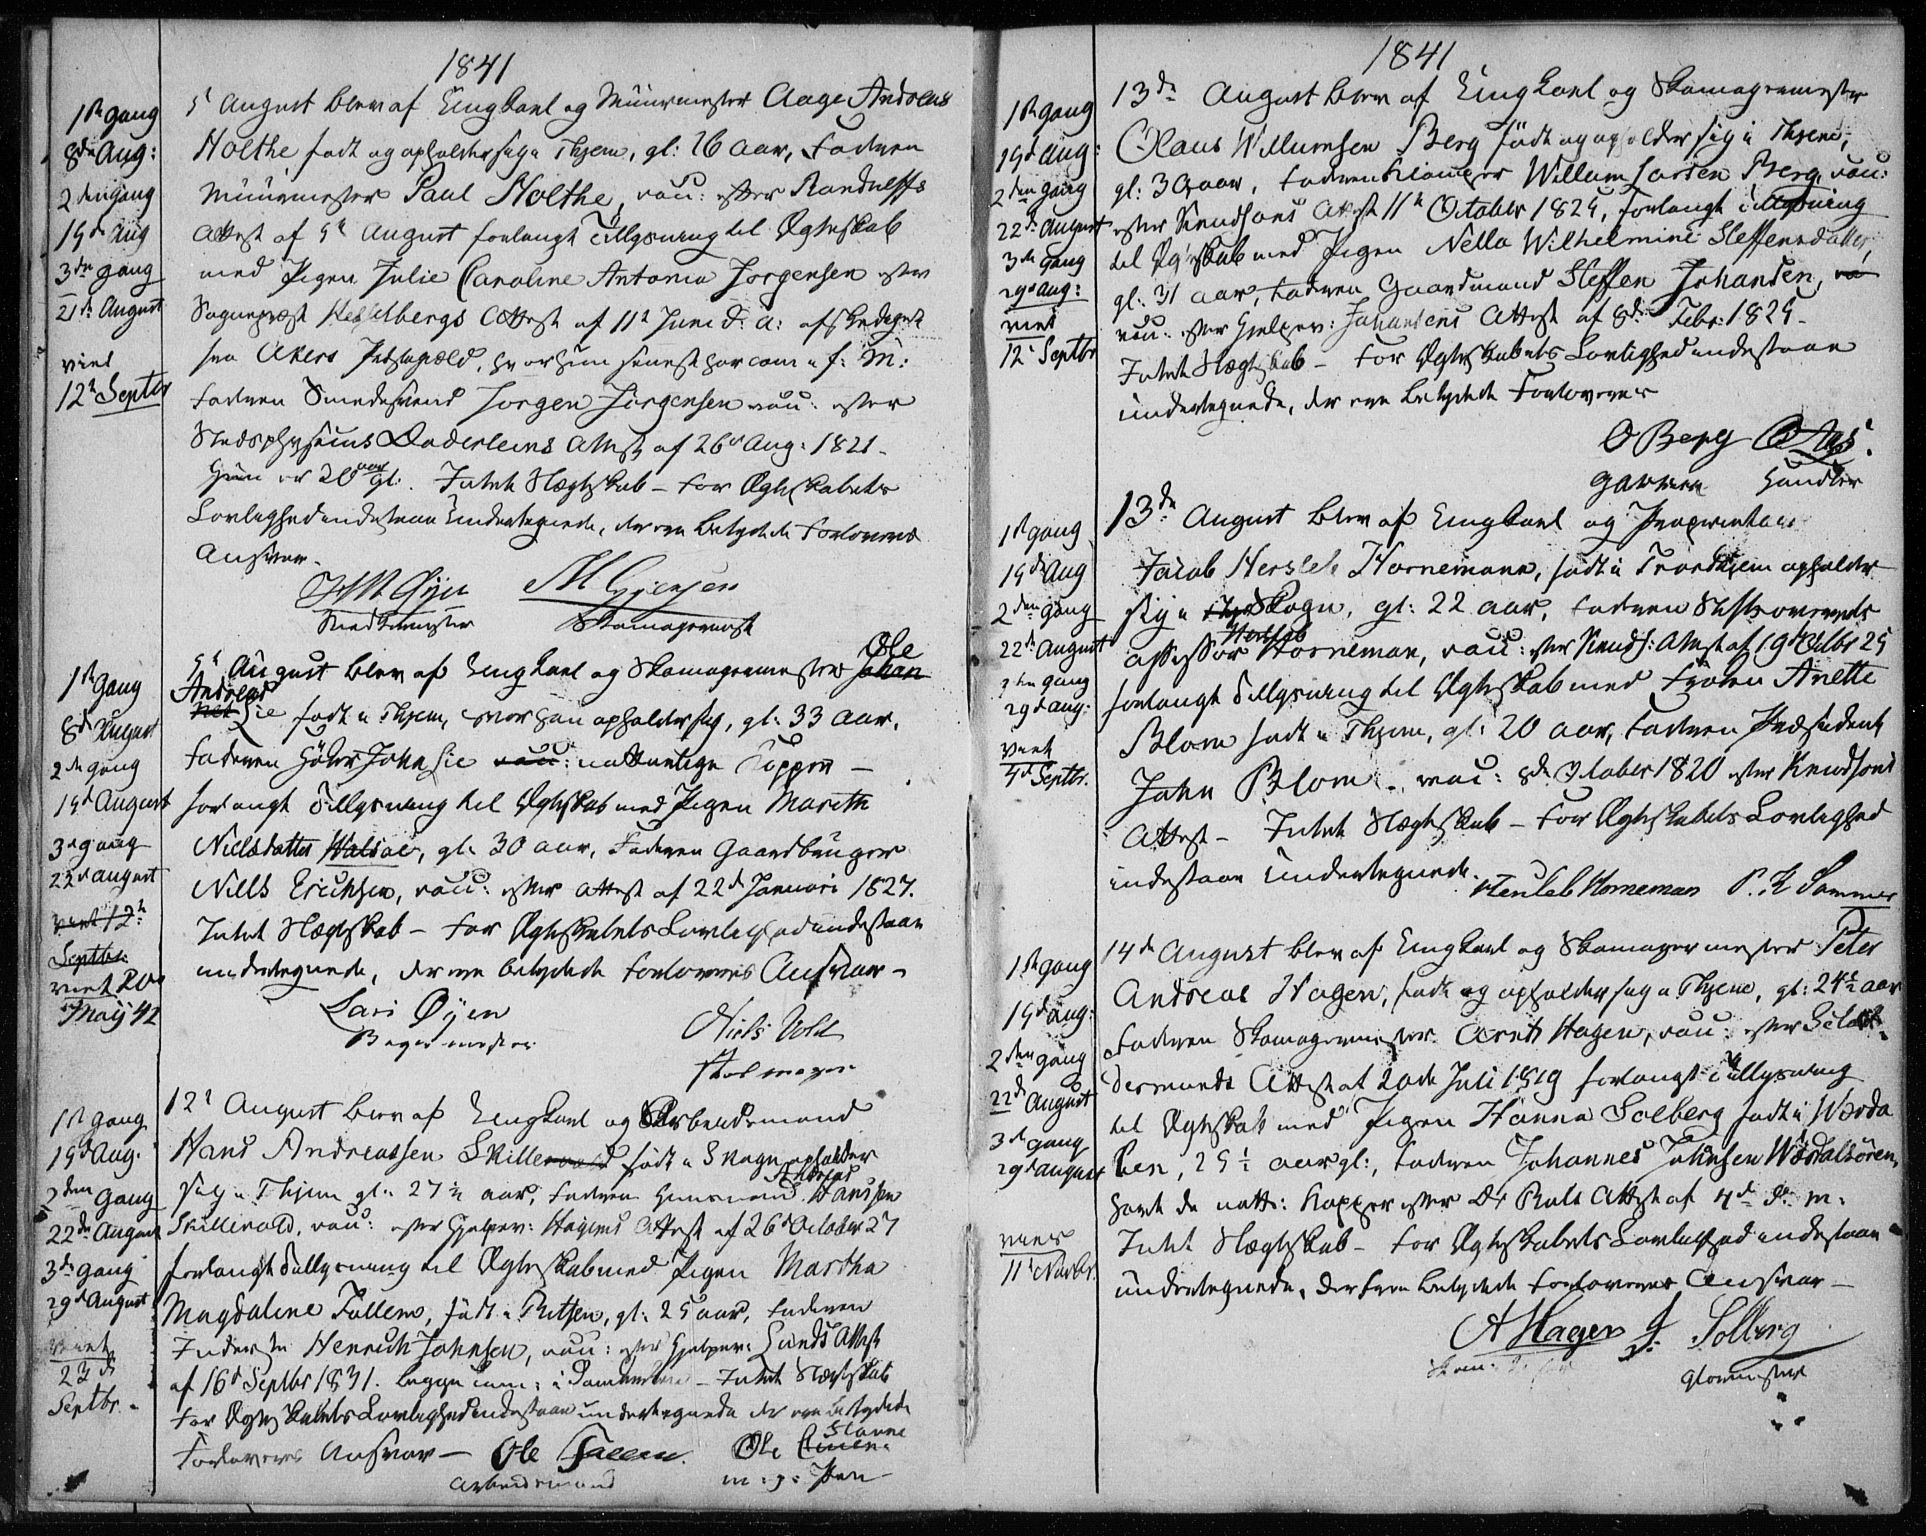 1841
1ste gang
8de Aug:
2den gang
15de Aug
3die gang
21de August
viet
12te Septbr
5te August blev af Ungkarl og Muurmester Aage Andreas
Holthe født og opholder sig i Thjem, gl: 26 aar, Faderen
Muurmester Paul Holthe, vacc: efter Randulffs
Attest af 5te August forlangt Tillysning til Ægteskab
med Pigen Julie Caroline Antonia Jørgensen efter
Sognepræst Attest af 11te Juni d: A: afskediget
fra Akers Præstegield, hvor hun senest har com: f: M:
Faderen Smedesvend Jørgen Jørgensen vacc: efter
Stadsphysicus Døderleins Attest af 26de Aug: 1821.
Hun er 20 aar gl:. Intet Slægtskab - For Ægteskabets
Lovlighed indestaae Undertegnede, der ere betydede Forloveres
Ansvar.
Øyen
Snedkermester
Skomagermest
1ste Gang
8de August
2den gang
15de August
3die gang
22de august
viet 12te
Septbr:
viet 20de
Maij 42
5te August blev af Ungkarl og Skomagermester Johan Ole
Andreas Lie født i Thjem, hvor han opholder sig, gl: 33 Aar,
Faderen John Lie vacc: naturlige Kopper -
forlangt Tillysning til Ægteskab med Pigen Mareth
Nielsdatter Halsae, gl: 30 aar, Faderen Gaardbruger
Niels Erichsen, vacc: efter Attest af 22de Januari 1827.
Intet Slægtskab - For Ægteskabets Lovlighed indestaae
undertegnede, der ere betydede Forloveres Ansvar -
Lars Øyen
Bagermester
Niels Vold
1ste Gang
15de Aug:
2den Gang
22de August
3die gang
29de August
viet
23de
Septbr.
12te August blev af Ungkarl og Arbeidsmand
Hans Andreassen Skillevold født i Skogn opholder
sig i Thjem gl: 27½ aar, Faderen Huusmand Andreas Hanssen
Skillevold, vacc: efter Hjelpev: Hagens Attest af 26de October 27
forlangt Tillysning til Ægteskab med Pigen Martha
Magdalene Fallem, født i Ritsen, gl: 25 aar, Faderen
Inderste Henrich Johnsen, vacc: efter Hjelpev: Lunds Attest
af 16de Septbr 1831. begge com: i Domkirken - Intet Slægtskab
For Ægteskabets Lovlighed indestaae undertegnede der ere betydede
Forloveres Ansvar - Ole Ole
Arbeidsmand
1841
1ste gang
15de Aug:
2den gang
22de August
3die gang
29de Aug:
viet
12te Septbr
13de August blev af Ungkarl og Skomagermester
Olaus Willumsen Berg født og opholder sig i Thjem,
gl: 30 aar, Faderen Willum Larsen Berg, vacc:
efter Knudsons Attest 11te October 1825, forlangt Tillysning
til Ægteskab med Pigen Nella Wilhelmine Steffensdatter,
gl: 31 aar, Faderen Gaardmand Steffen Johansen,
vacc: efter Hjelpev: Johansens Attest af 8de Febr: 1825.
Intet Slægtskab - For Ægteskabets Lovlighed indestaae
undertegnede, der ere betydede Forloveres
O Berg
Garver Handler
1ste gang
15de Aug
2den gang
22de August
3die gang
29de Aug:
viet
5te Septbr.
13de August blev af Ungkarl og Proprietair
Jacob Hersleb Hornemann, født i Trondhjem opholder
sig i Skogn, gl: 22 aar, Faderen Stiftsoverrets
assessor Hersleb Horneman, vacc: efter Knuds: Attest af 19de Octbr 25
forlangt Tillysning til Ægteskab med Frøken Anette
Blom født i Thjem, gl: 20 aar, Faderen Præsident
John Blom, vacc: 8de October 1820 efter Knudsons
Attest - Intet Slægtskab - For Ægteskabets Lovlighed
indestaae Undertegnede. Hersleb Horneman P. K Sommer
1ste gang
15de aug:
2den gang
22de August
3die gang
29de August
viet
11te Novbr.
14de August blev af Ungkarl og Skomagermester Peter
Andreas Hagen, født og opholder sig i Thjem, gl: 24½ aar
Faderen Skomagermester Arnt Hagen, vacc: efter
Attest af 20de Juli 1819 forlangt Tillysning
til Ægteskab med Pigen Hanna Solberg født i Wærda
len, 25½ aar gl:, Faderen Johannes Johnsen Wærdalsøren,
havt de natl: Kopper efter Dr Attest af 4de d: M:
Intet Slægtskab - For Ægteskabets Lovlighed indestaae
undertegnede, der ere betydede Forloveres Ansvar -
A Hagen J. Solberg